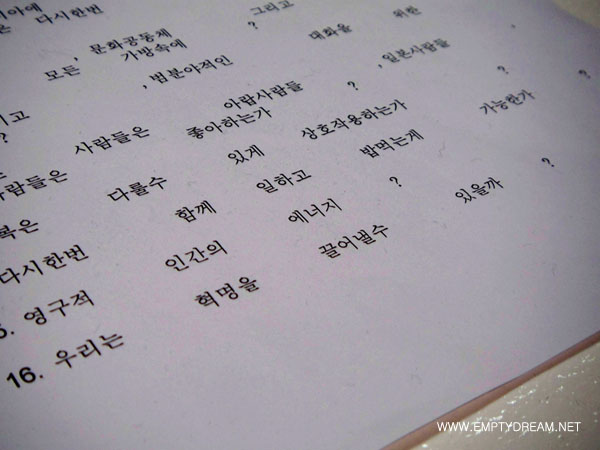 다시한번
, 문화공동체 그리고
모든 가방속에 ?
, 범분야적인 대화를 위한
?
사람들은 아랍사람들 , 일본사람들
사람들은 좋아하는가 ?
다룰수 있게 상호작용하는가 ?
다시한번 함께 일하고 밥먹는게 가능한가 ?
5. 영구적 인간의 에너지 ?
16. 우리는 혁명을 끌어낼수 있을까 ?
WWW.EMPTYDREAM.NET